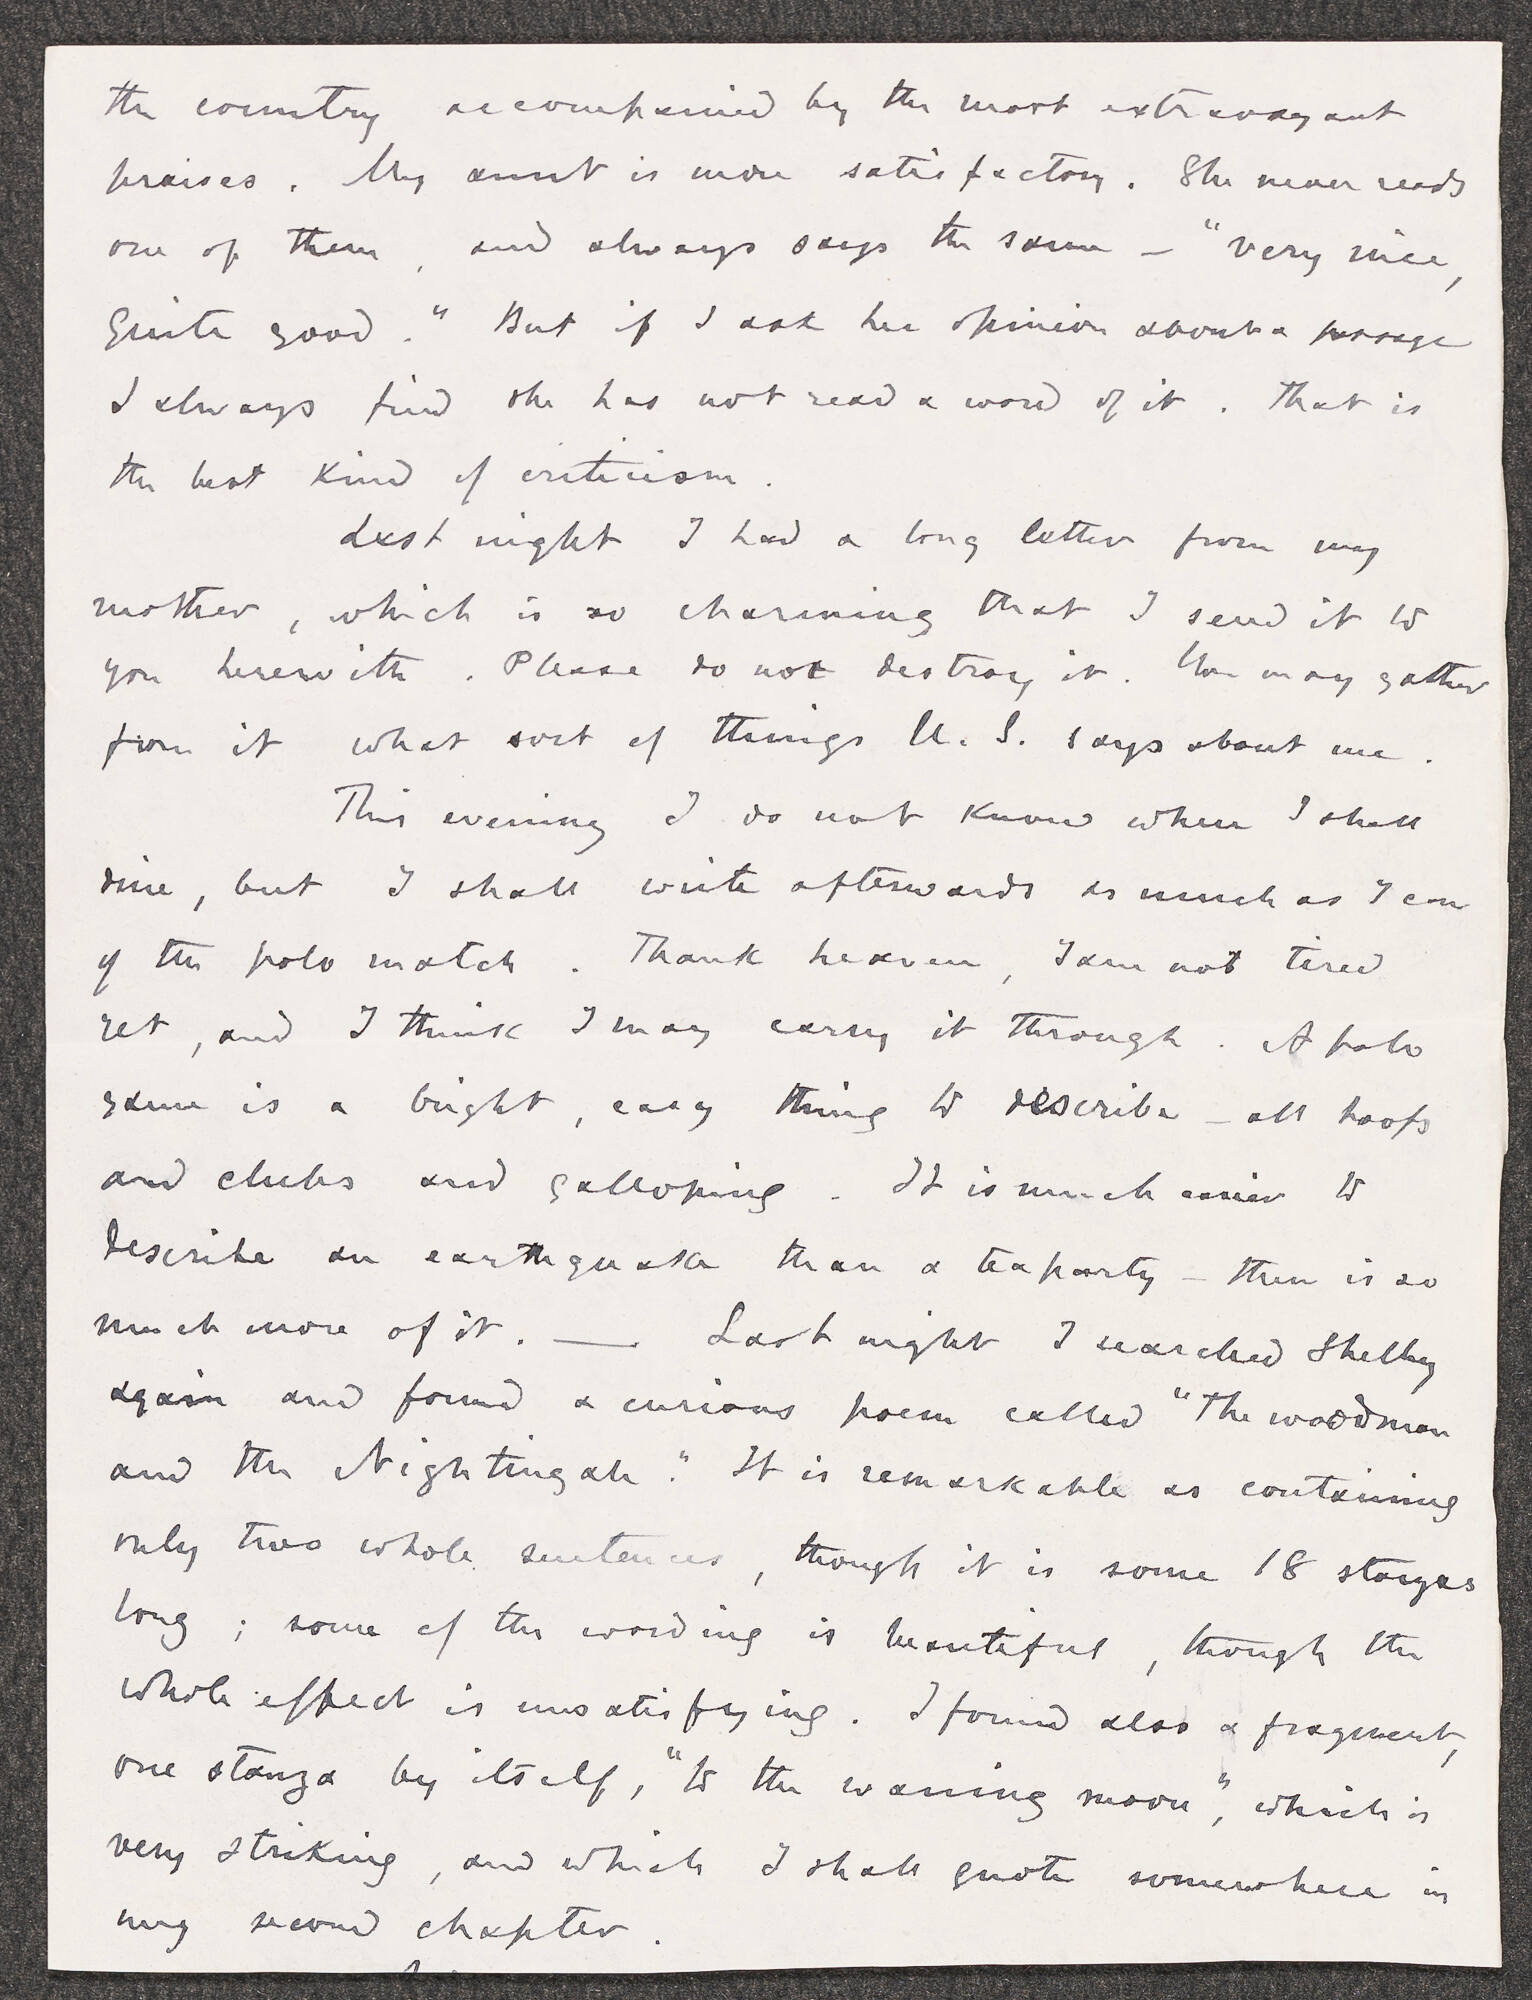 the country accompanied by the most extravagant
praises. My aunt is more satisfactory. She never reads
one of them, and always says the same – "very nice,
quite good." But if I ask her opinion about a passage
I always find she has not read a word of it. That is
the best kind of criticism.
Last night I had a long letter from my
mother, which is so charming that I send it to
you herewith. Please do not destroy it. You may gather
from it what sort of things U. S. says about me.
This evening I do not know where I shall
dine, but I shall write afterwards as much as I can
of the polo match. Thank heaven, I am not tired
yet, and I think I may carry it through. A polo
game is a bright, easy thing to describe – all hoofs
and clubs and galloping. It is much easier to
describe an earthquake than a teaparty – there is so
much more of it. — Last night I searched Shelley
again and found a curious poem called "The woodman
and the Nightingale." It is remarkable as containing
only two whole sentences, though it is some 18 stanzas
long; some of the wording is beautiful, though the
whole effect is unsatisfying. I found also a fragment,
one stanza by itself, "to the waning moon", which is
very striking, and which I shall quote somewhere in
my second chapter.